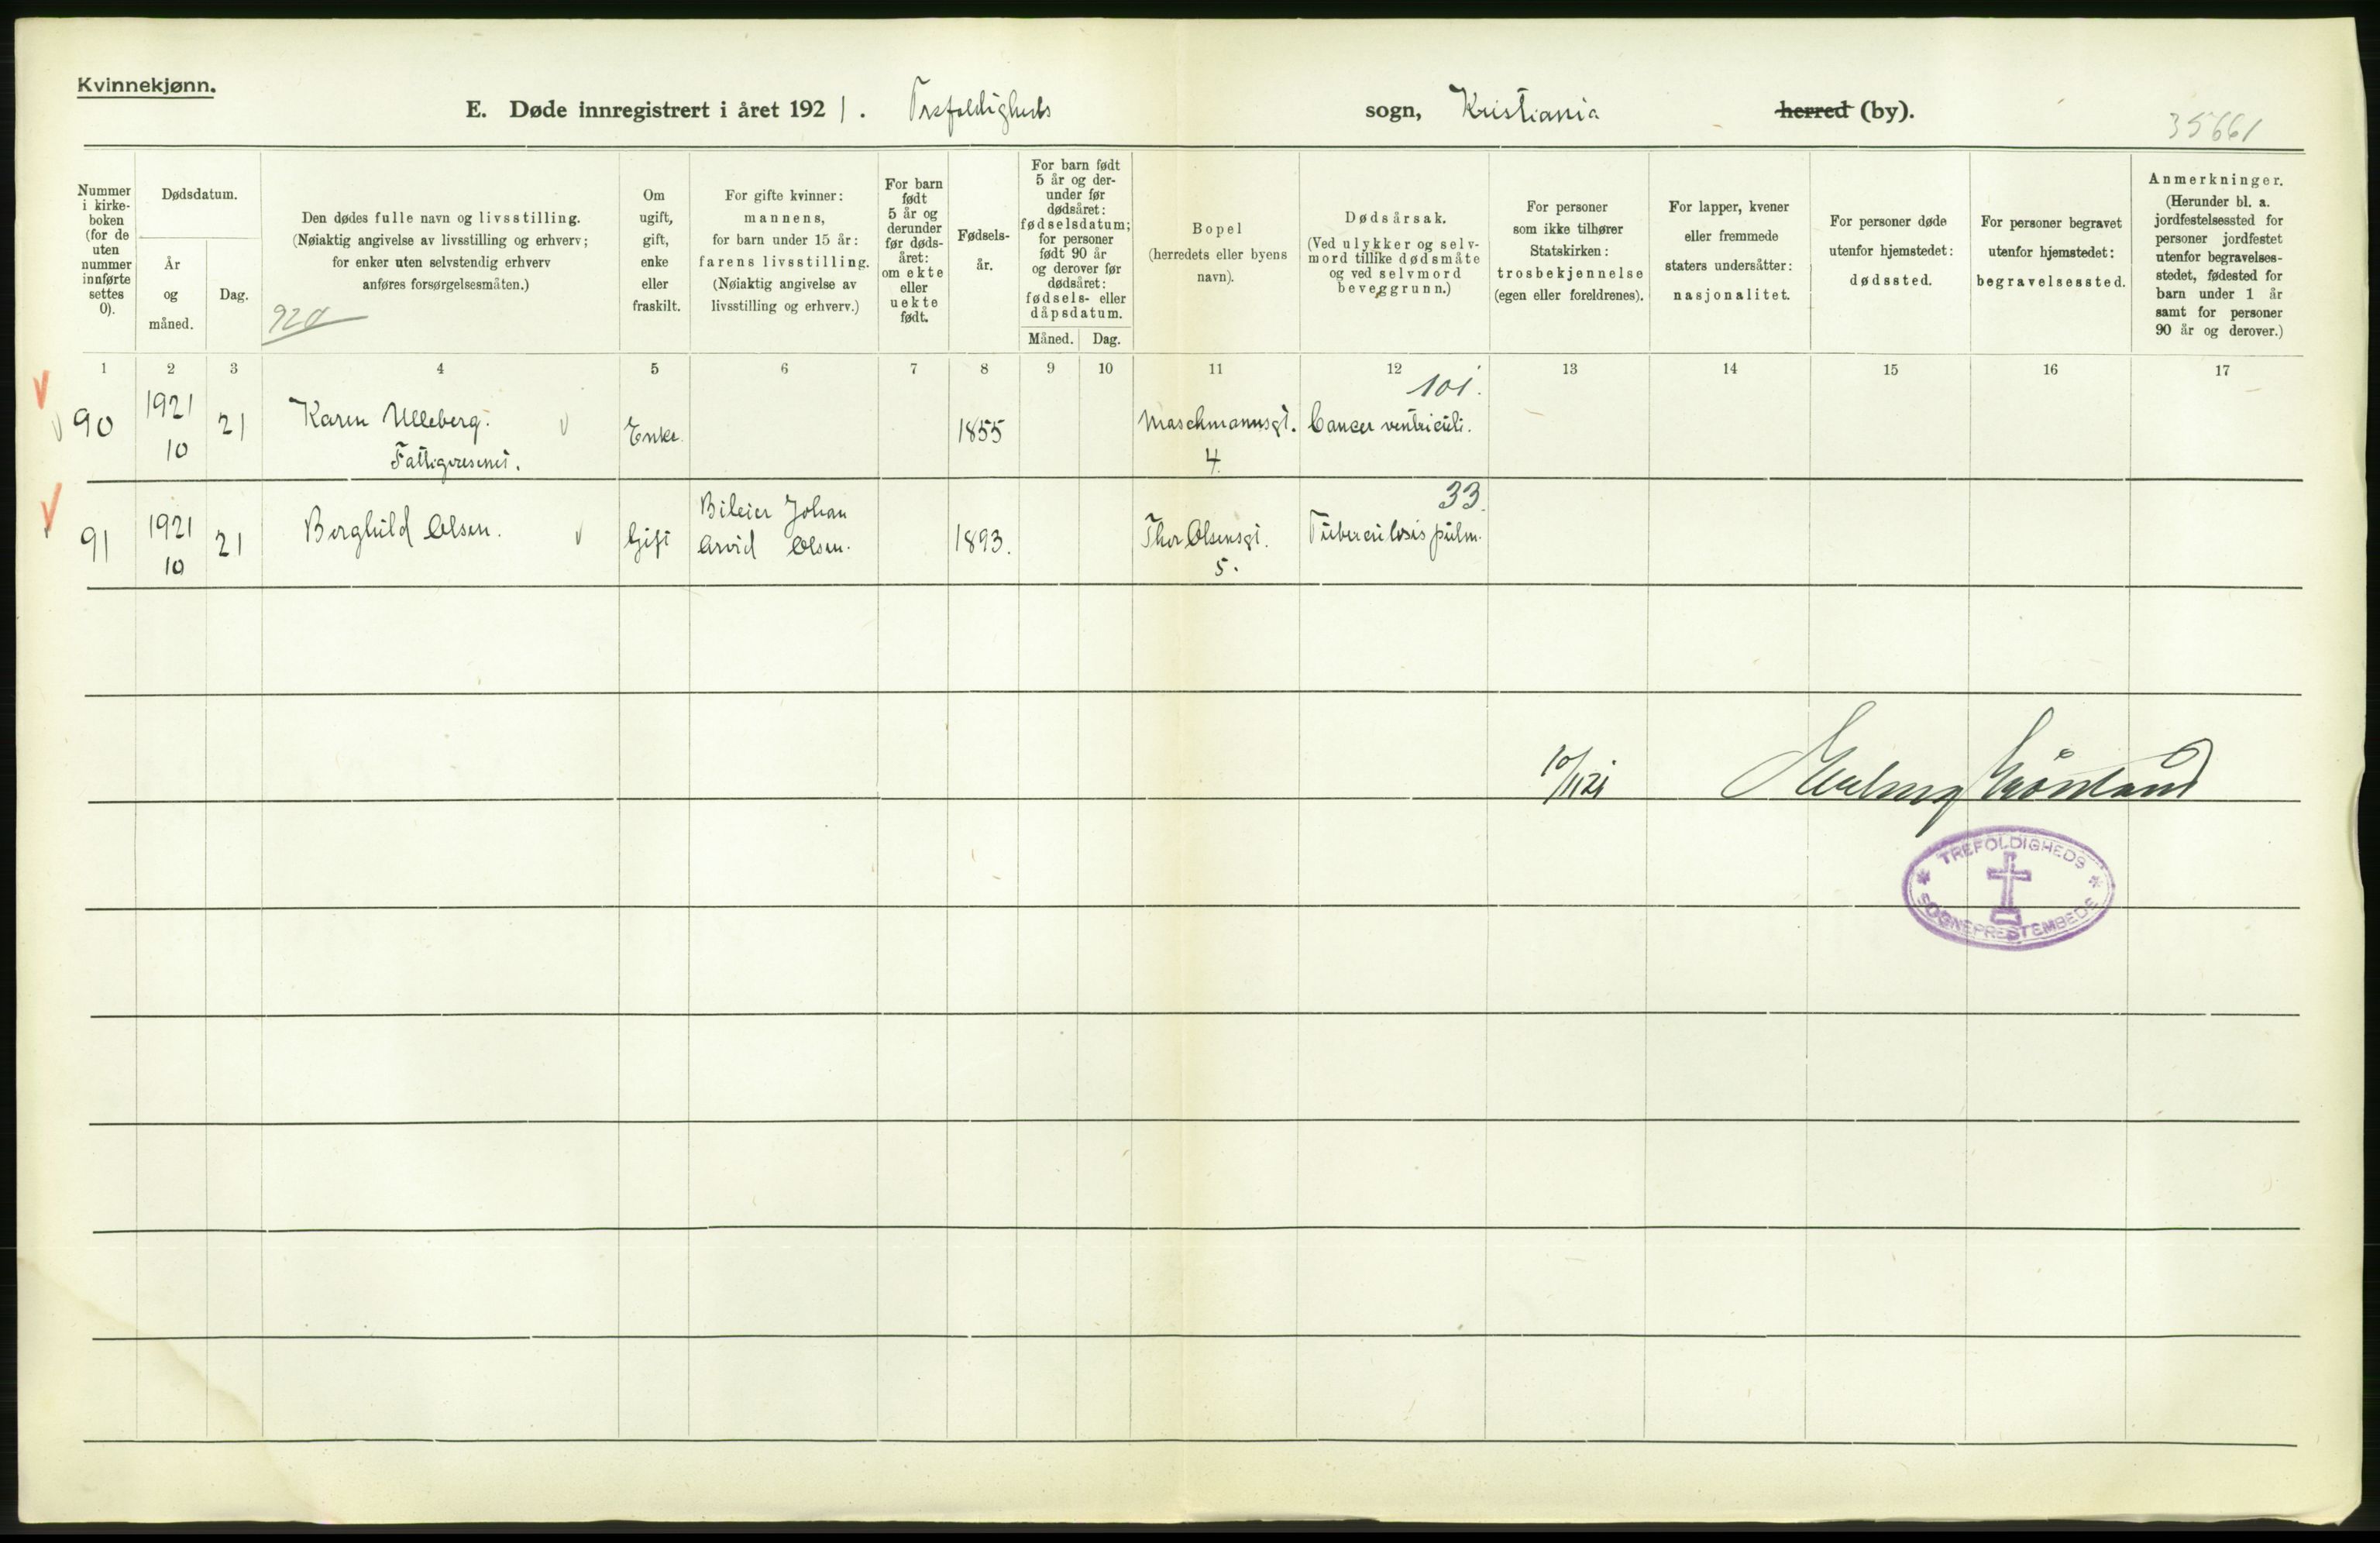 Kvinnekjønn.
E. Døde innregistrert i året 1921. Trefoldigheds sogn, Kristiania herred (by).
35661
Nummer i kirke-boken (for de uten nummer innførte settes 0).
Dødsdatum.
År og måned.
Dag.
Den dødes fulle navn og livsstilling.
(Nøiaktig angivelse av livsstilling og erhverv;
for enker uten selvstendig erhverv
anføres forsørgelsesmåten.)
Om ugift, gift, enke eller fraskilt.
For gifte kvinner: mannens,
for barn under 15 år:
farens livsstilling.
(Nøiaktig angivelse av
livsstilling og erhverv.)
For barn født 5 år og derunder før døds-året: om ekte eller uekte født.
Fødsels-år.
For barn født 5 år og der-under før dødsåret: fødselsdatum; for personer født 90 år og derover før dødsåret: fødsels- eller dåpsdatum.
Måned. Dag.
Bopel
(herredets eller byens navn).
Dødsårsak.
(Ved ulykker og selv-mord tillike dødsmåte og ved selvmord beveggrunn.)
For personer som ikke tilhører Statskirken: trosbekjennelse (egen eller foreldrenes).
For lapper, kvener eller fremmede staters undersåtter: nasjonalitet.
For personer døde utenfor hjemstedet: dødssted.
For personer begravet utenfor hjemstedet: begravelsessted.
Anmerkninger.
(Herunder bl. a. jordfestelsessted for personer jordfestet utenfor begravelses-stedet, fødested for barn under 1 år samt for personer 90 år og derover.)
1 2 3 4 5 6 7 8 9 10 11 12 13 14 15 16 17
101.
90 1921 21 Karen Ulleberg. Enke 1855 Maschmannsgt. Cancer ventriculi.
10 Fattigvesenet. 4.
33.
91 1921 21 Borghild Olsen. Gift Bileier Johan 1893. Thor Olsensgt. Tuberculosis pulm.
10 Arvid Olsen. 5.
10/11 21
TREFOLDIGHEDS
SOGNEPRESTEMBEDE